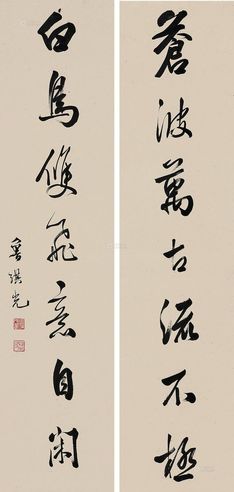 蒼波萬古流不極
白鳥雙飛意自閑
魯琪光